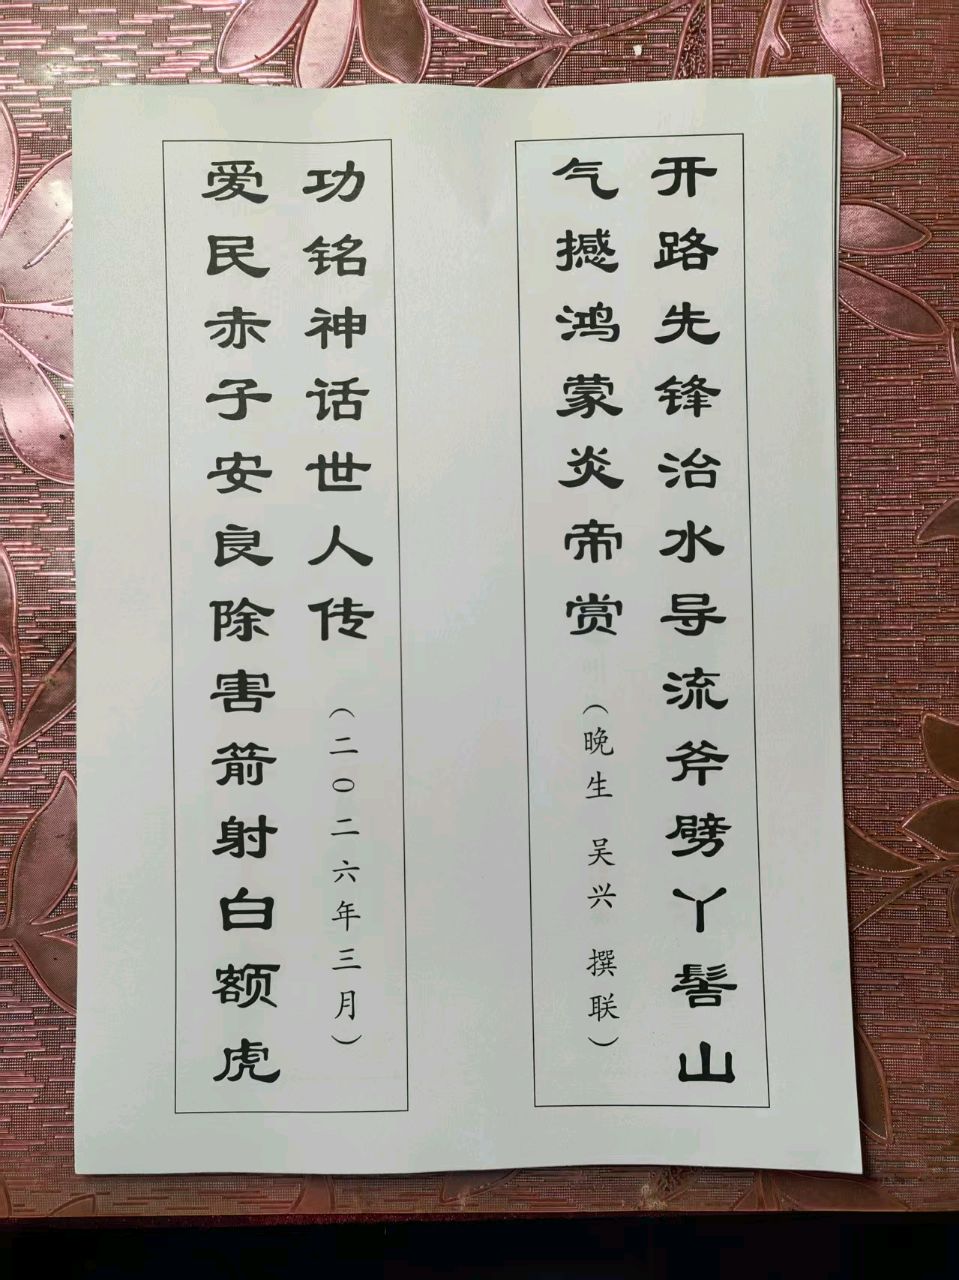 开路先锋治水导流斧劈丫髻山
气撼鸿蒙炎帝赏
(晚生 吴兴 撰联)
爱民赤子安良除害箭射白额虎
功铭神话世人传
(二〇二六年三月)